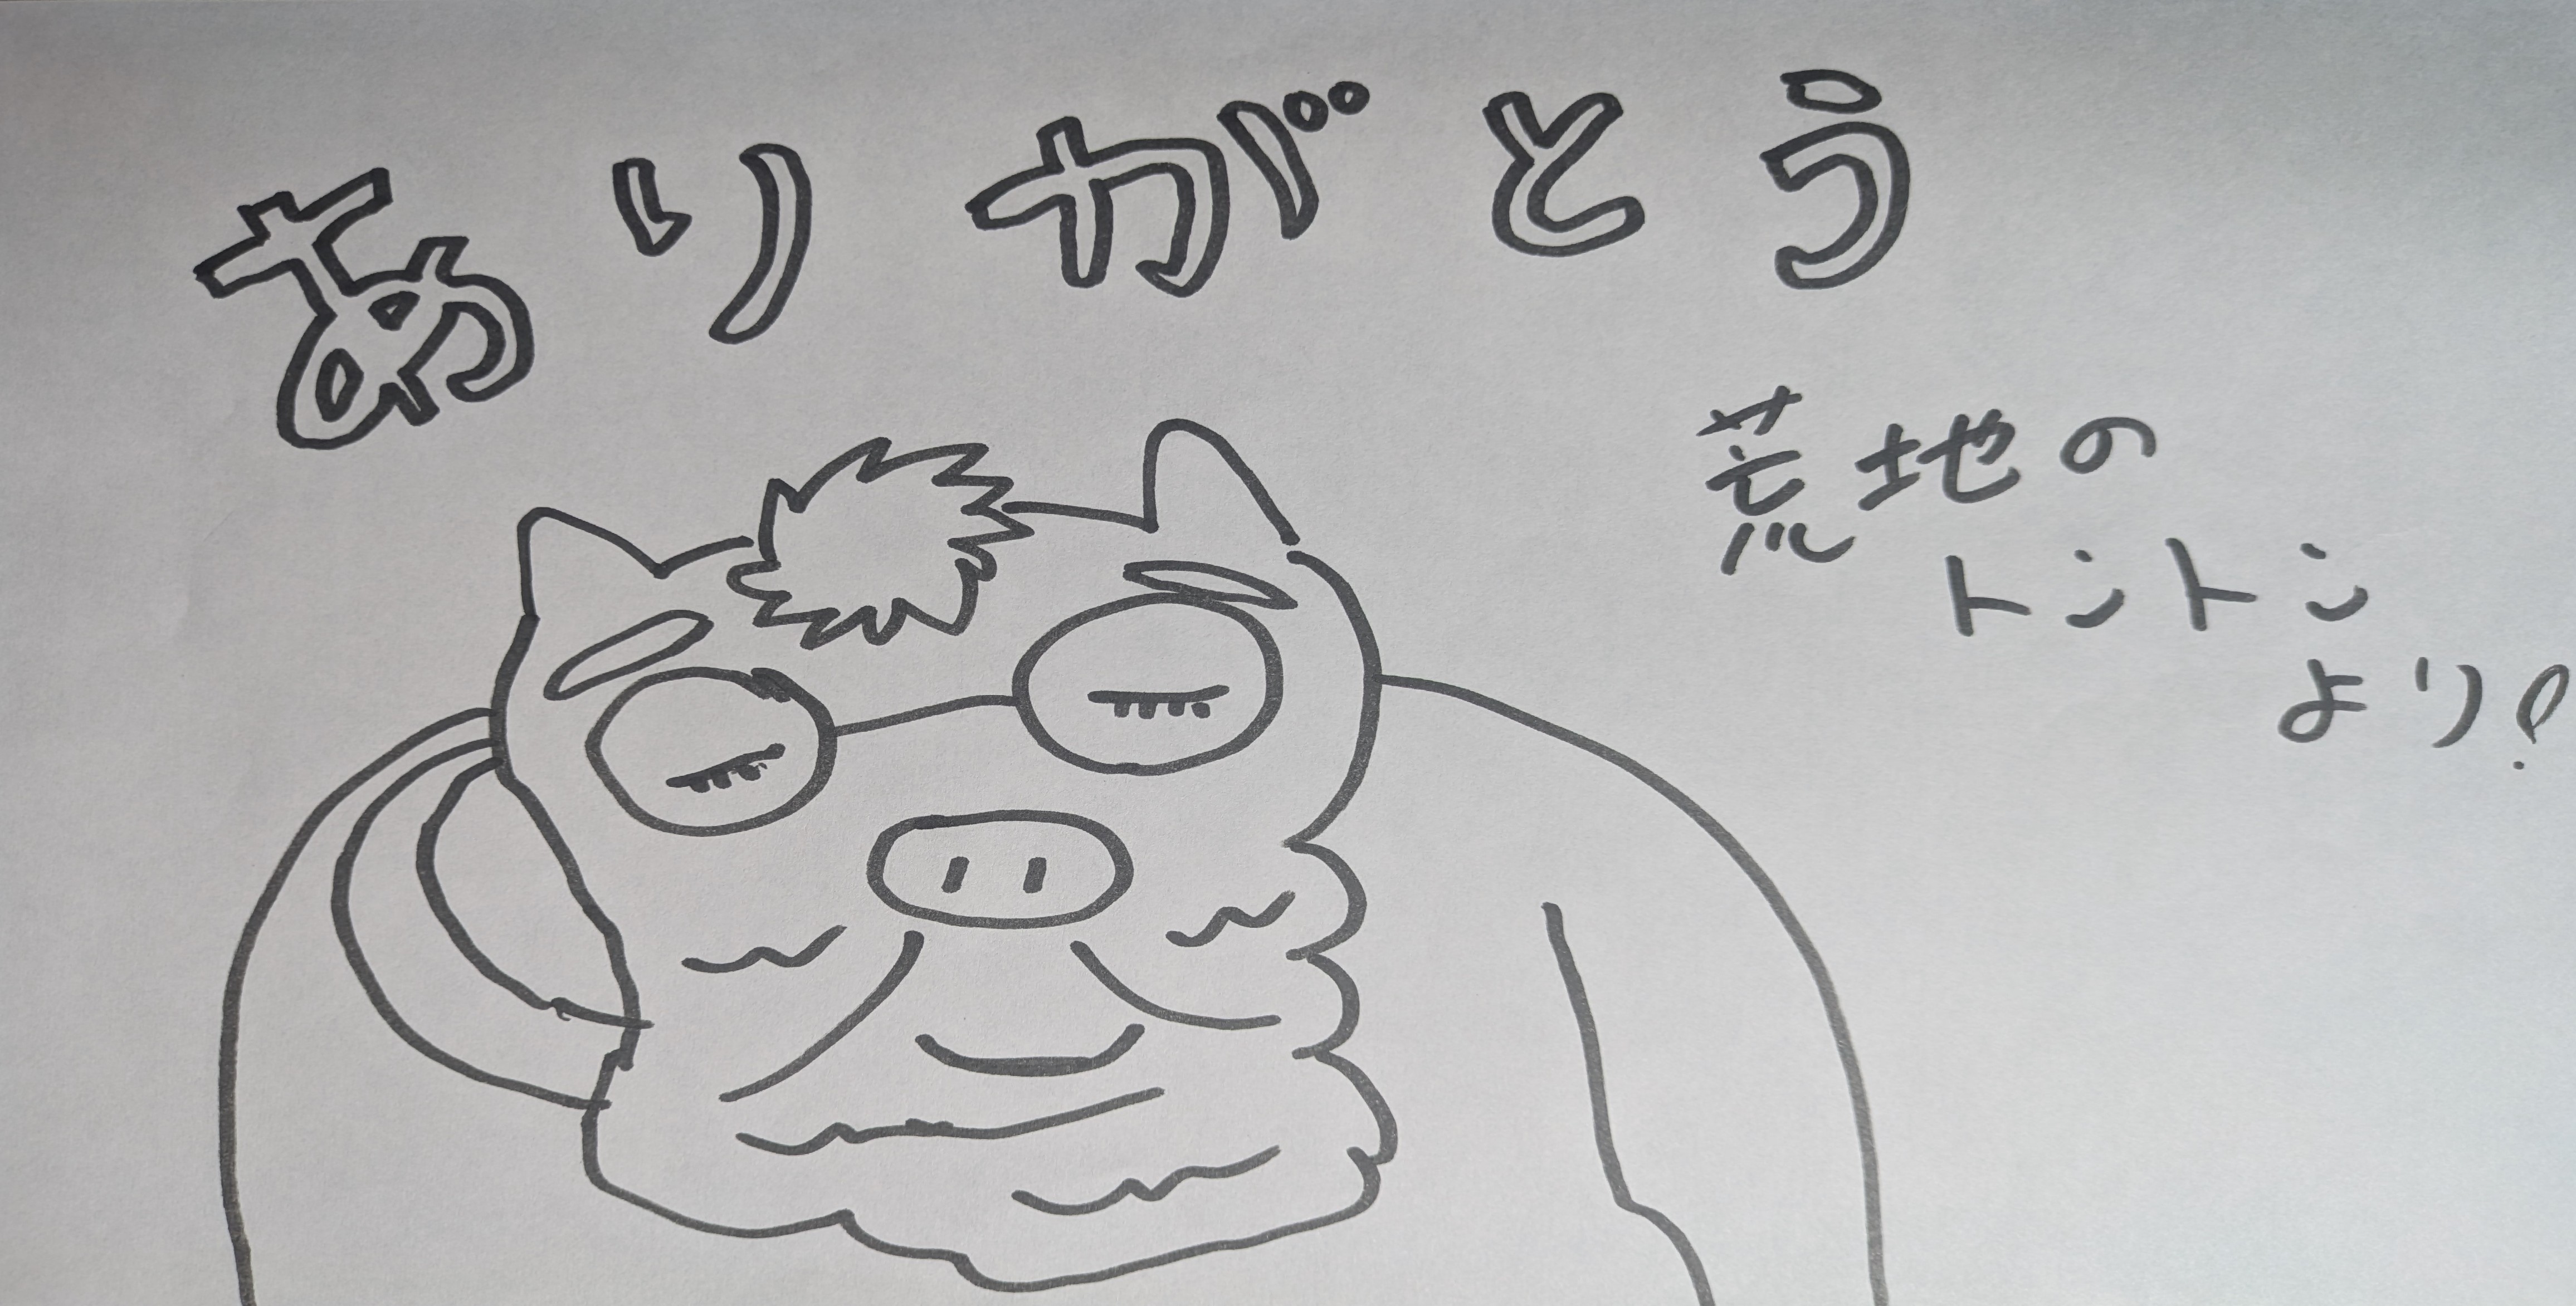 ありがとう
荒地の
トントン
より!